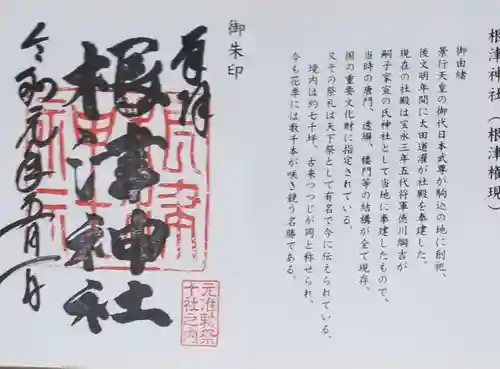 根津神社(根津権現)
御由緒
景行天皇の御代日本武尊が駒込の地に創祀、
後文明年間に太田道灌が社殿を奉建した。
現在の社殿は宝永三年五代将軍徳川綱吉が
嗣子家宣の氏神社として当地に奉建したもので、
当時の唐門、透塀、楼門等の結構が全て現存、
国の重要文化財に指定されている。
又その祭礼は天下祭として有名で今に伝えられている。
境内は約七千坪、古来つつじが岡と称せられ、
今も花季には数千本が咲き競う名勝である。
御朱印
奉拝
根津神社
根津神社
元准勅祭
十社之内
令和元年五月一日